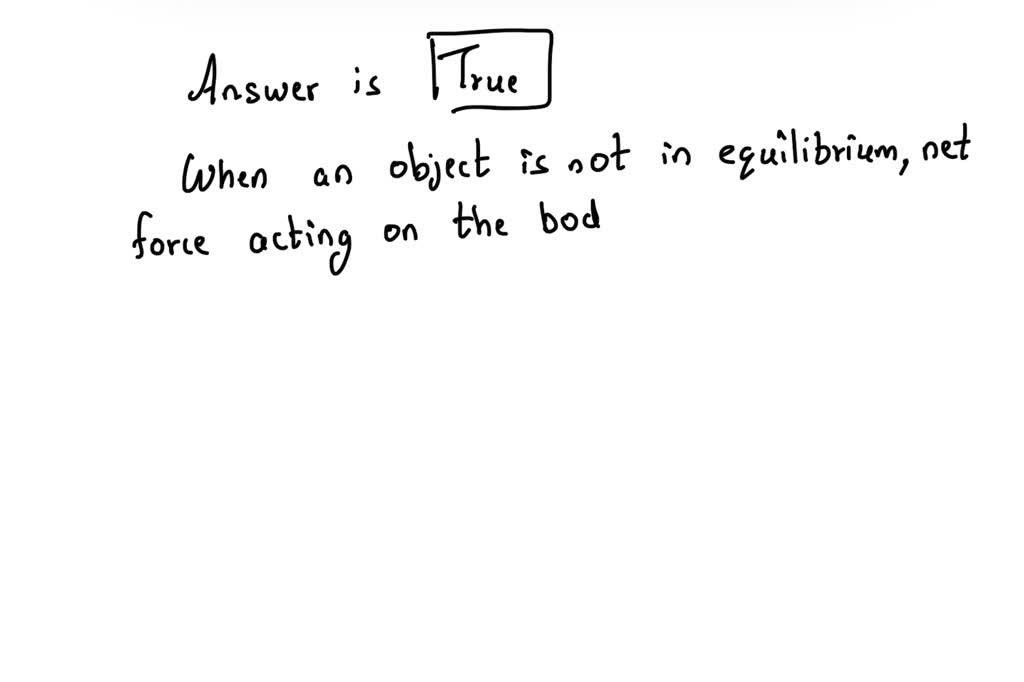 Answer is True
When an object is not in equilibrium, net
force acting on the bod